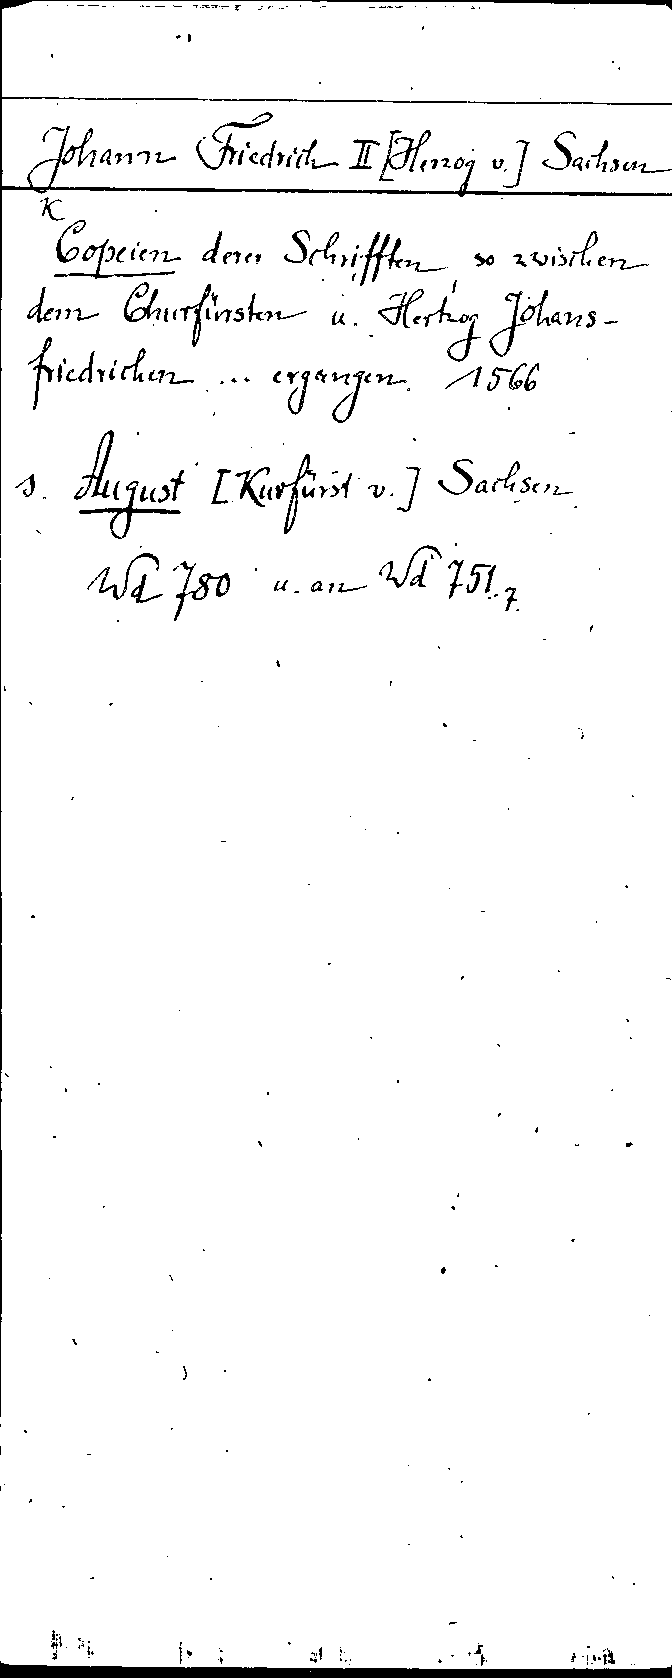 Johann Friedrich II [Herzog v.] Sachsen
K
Copeien derer Schrifften, so zwischen
dem Churfürsten u. Hertzog Johans-
friedrichen ... ergangen. 1566
s. August [Kurfürst v.] Sachsen
Wd 780 u. an Wd 751.7